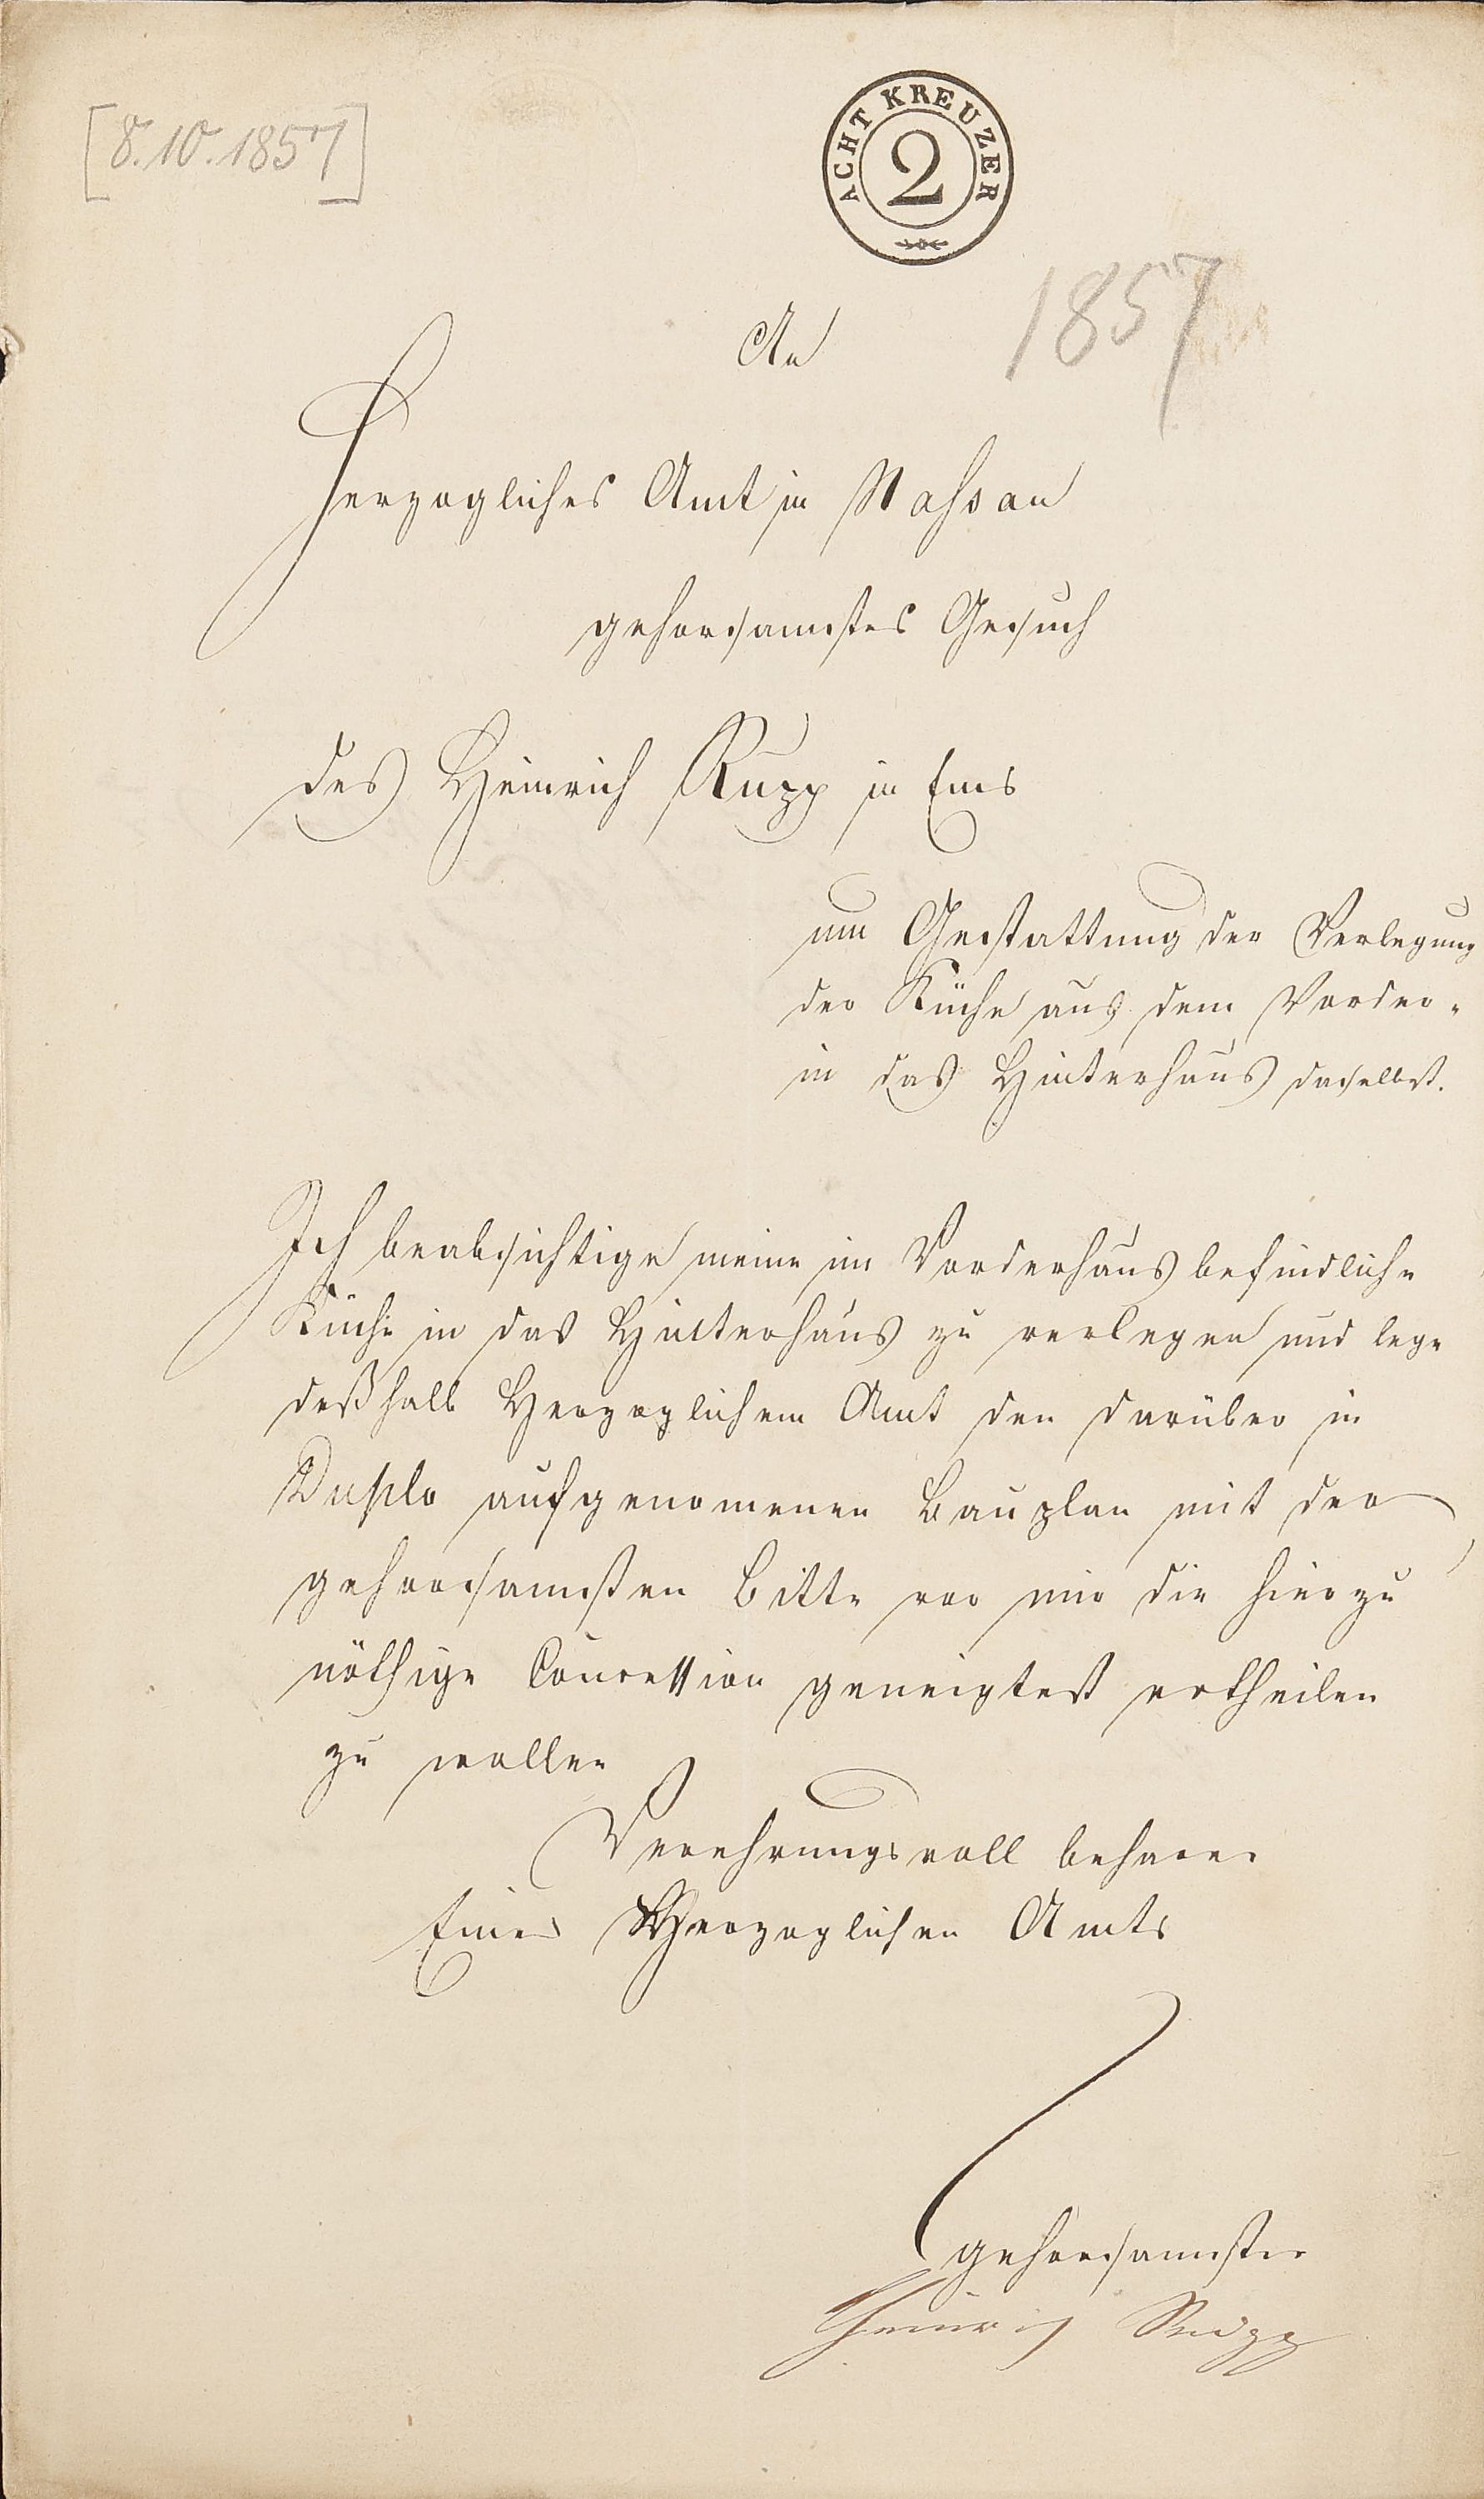 [8.10.1857]
ACHT KREUZER
2
1857
An
Herzogliches Amt in Nassau
gehorsamstes Gesuch
des Heinrich Rupp in Ems
um Gestattung der Verlegung
der Küche aus dem Vorder-
in das Hinterhaus daselbst.
Ich beabsichtige meine im Vorderhaus befindliche
Küche in das Hinterhaus zu verlegen und lege
deßhalb Herzoglichem Amt den darüber in
Duplo aufgenomenen Bauplan mit der
gehorsamsten Bitte vor mir die hierzu
nöthige Concession geneigtest ertheilen
zu wollen
Verehrungsvoll beharre
Eines Herzoglichen Amts
gehorsamster
Heinrich Rupp